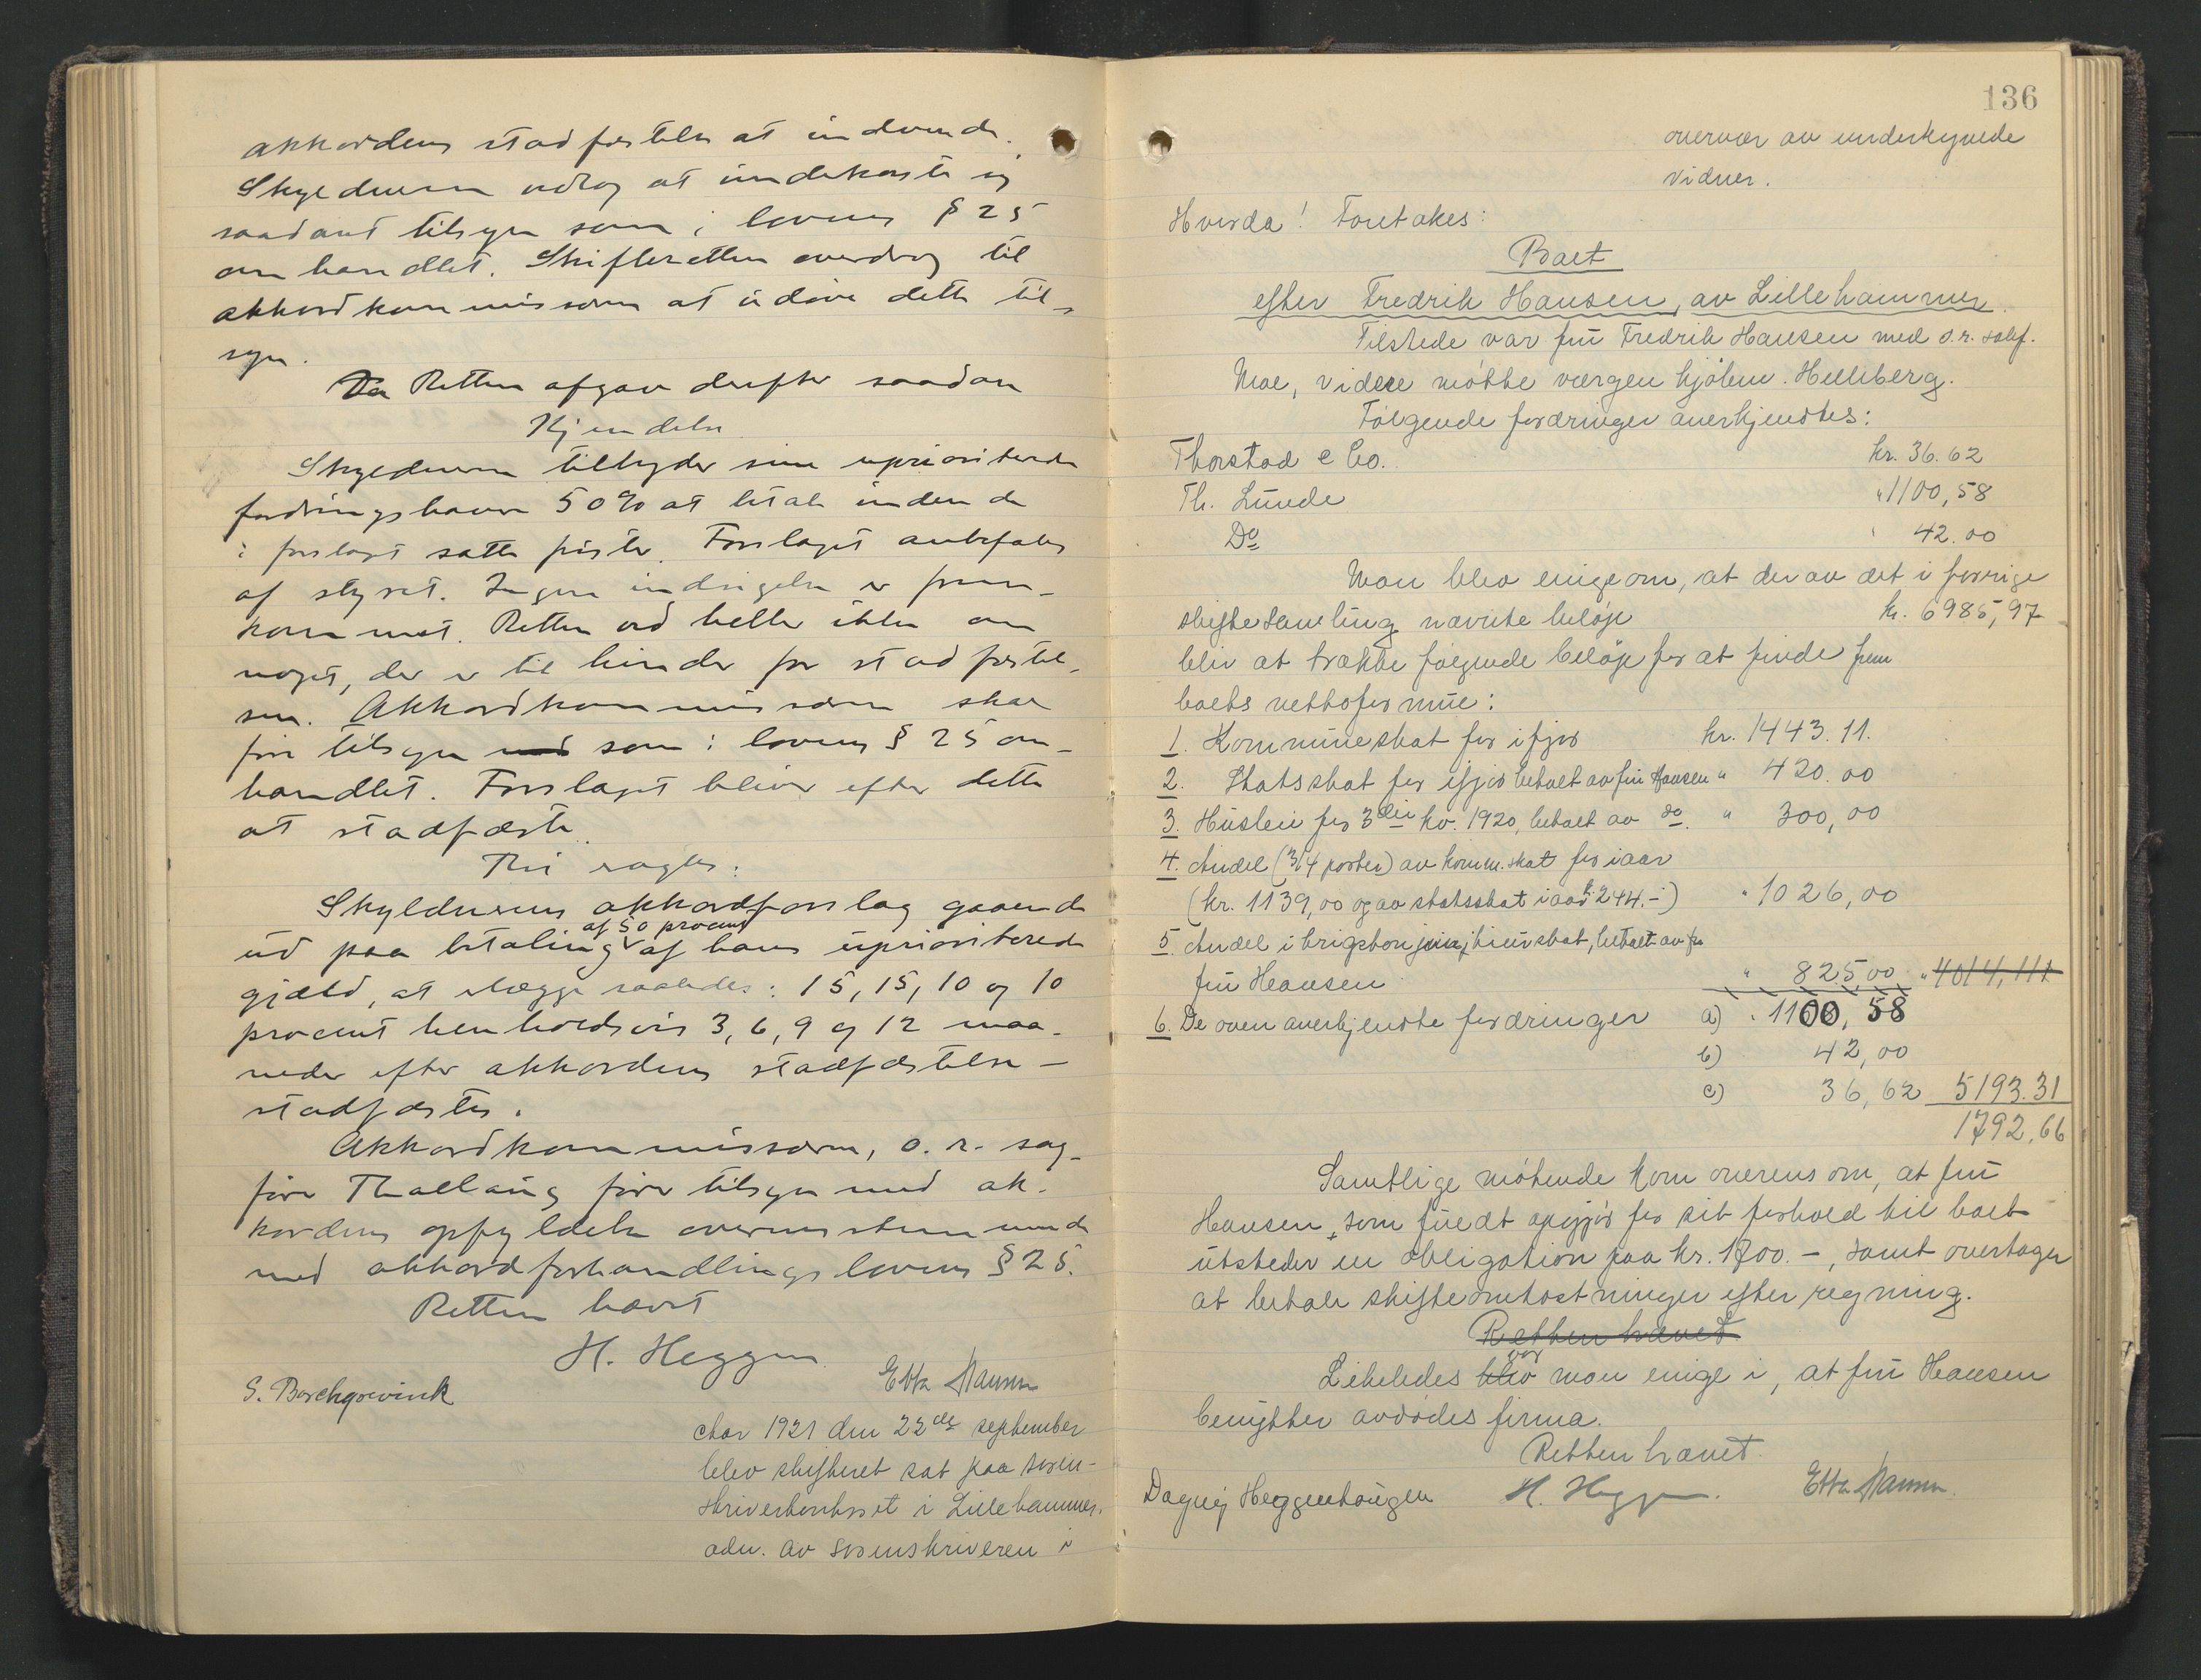 akkordens stadfæstelse at indvende.
Skyldneren vedtog at underkaste sig
saadant tilsyn som i lovens § 25
omhandlet. Skifteretten overdrog til
akkordkommissæren at udøve dette til-
syn.
Da Retten afgav derefter saadan
Kjendelse
Skyldneren tilbyder sine uprioriterede
fordringshavere 50% at betale inden de
i forslaget satte frister. Forslaget anbefales
af styret. Ingen indsigelse er frem-
kommet. Retten ved heller ikke om
noget, der er til hinder for stadfæstel-
sen. Akkordkommissæren skal
føre tilsyn med som i lovens § 25 om-
handlet. Forslaget bliver efter dette
at stadfæste.
Thi sagtes:
Skyldnerens akkordforslag gaaende
af 50 procent
ud paa betaling af hans uprioriterede
gjæld, at erlægge saaledes: 15, 15, 10 og 10
procent henholdsvis 3, 6, 9 og 12 maa-
neder efter akkordens stadfæstelse –
stadfæstes.
Akkordkommissæren, o. r. sag-
fører Thallaug fører tilsyn med ak-
kordens opfyldelse overensstemmende
med akkordforhandlingslovens § 25.
Retten hævet
H. Heggen
S. Borchgrevink Ebba Hansen
Aar 1921 den 22de september
blev skifteret sat paa soren-
skriverkontoret i Lillehammer,
adm. av sorenskriveren i
136
overvær av underskrevne
vidner.
Hvorda! Foretokes:
Boet
efter Fredrik Hansen, av Lillehammer.
Tilstede var fru Fredrik Hansen med o.r. sakf.
Moe, videre møtte vergen kjøbm. Helleberg.
Følgende fordringer anerkjendtes:
Thorstad & Co. kr. 36.62
Th. Lunde " 1100,58
Do " 42.00
Man blev enige om, at der av det i forrige
skiftesamling nævnte beløp kr. 6985,97
blir at trække følgende beløp for at finde frem
boets nettoformue:
1. Kommuneskat for ifjor kr. 1443.11.
2. Statsskat for ifjor betalt av fru Hansen " 420.00
3. Husleie for 3die kv. 1920, betalt av do. " 300,00
4. Andel (3/4 parter) av komm. skat for iaar
(kr. 1139,00 og av statsskat iaar kr. 244.-) " 1026,00
5. Andel i krigskonjunkturskat, betalt av fru
fru Hansen " 825,00 " 4014,11
6. De oven anerkjendte fordringer a) " 1100,58
b) 42,00
c) 36,62 5193.31
1792,66
Samtlige møtende kom overens om, at fru
Hansen, som fuldt opgjør for sit forhold til boet
utsteder en obligation paa kr. 1800.-, samt overtager
at betale skifteomkostninger efter regning.
Retten hævet
var
Likeledes blev man enige i, at fru Hansen
benytter avdødes firma.
Retten hævet.
Dagny Heggenhougen H. Heggen. Ebba Hansen.